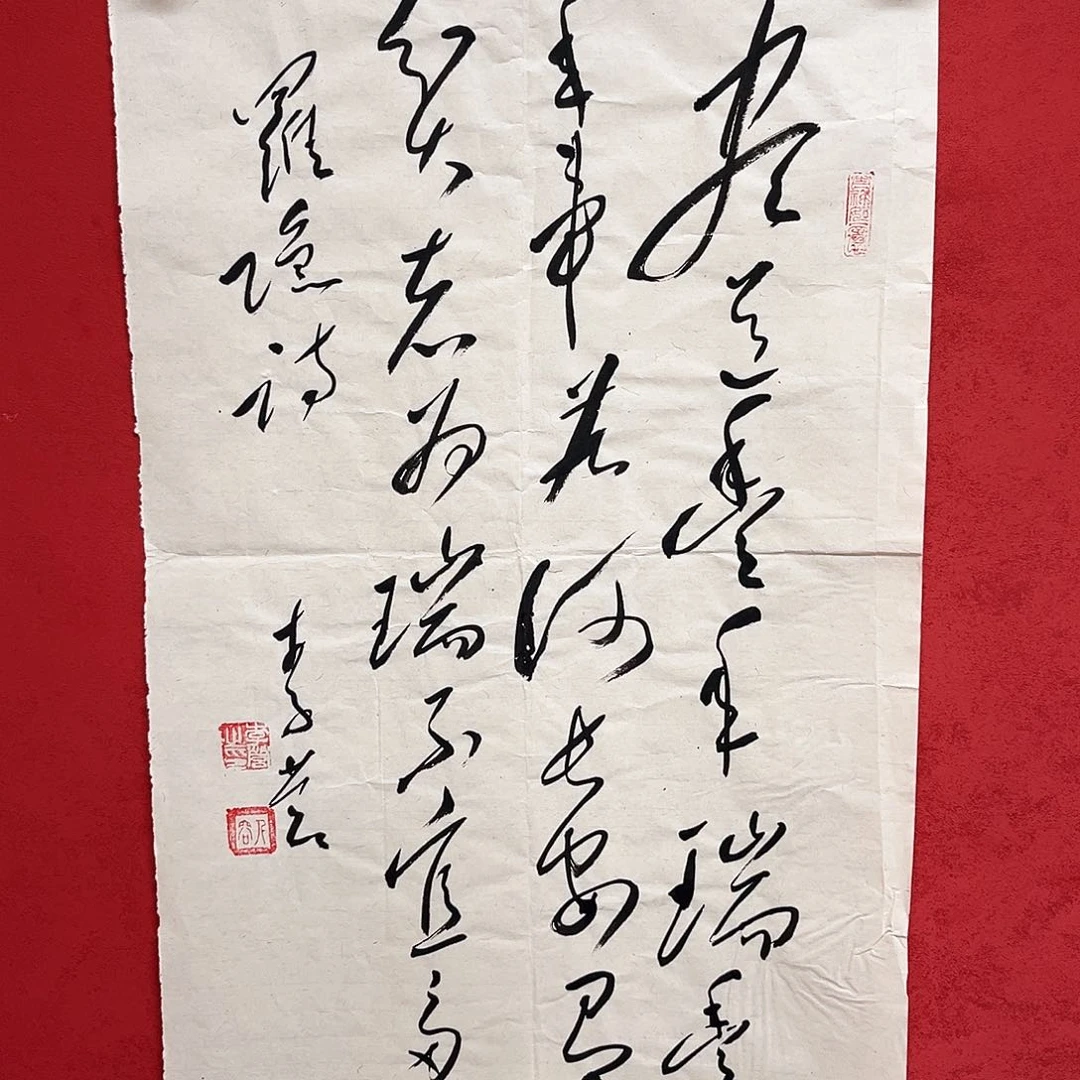 盡道豐年瑞豐
年事若何長安
貧者為瑞不宜多
羅隱詩
李